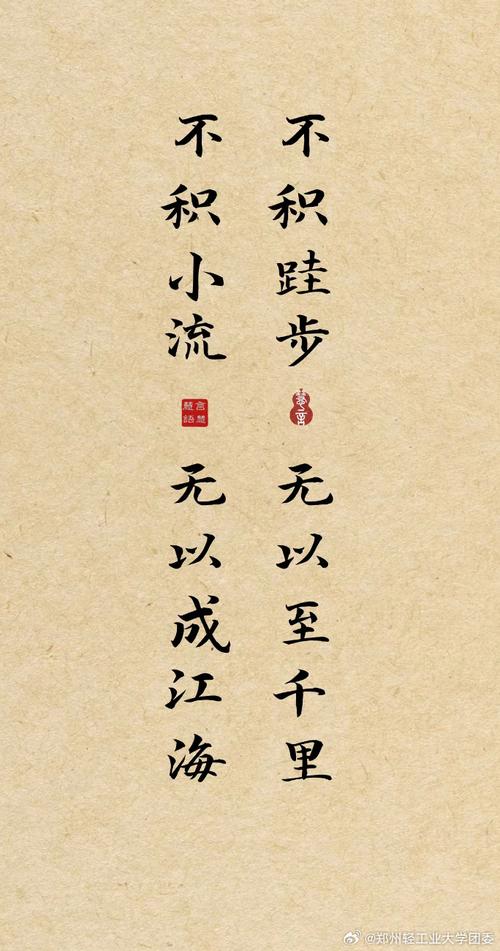 不积跬步
无以至千里
不积小流
无以成江海
@郑州轻工业大学团委